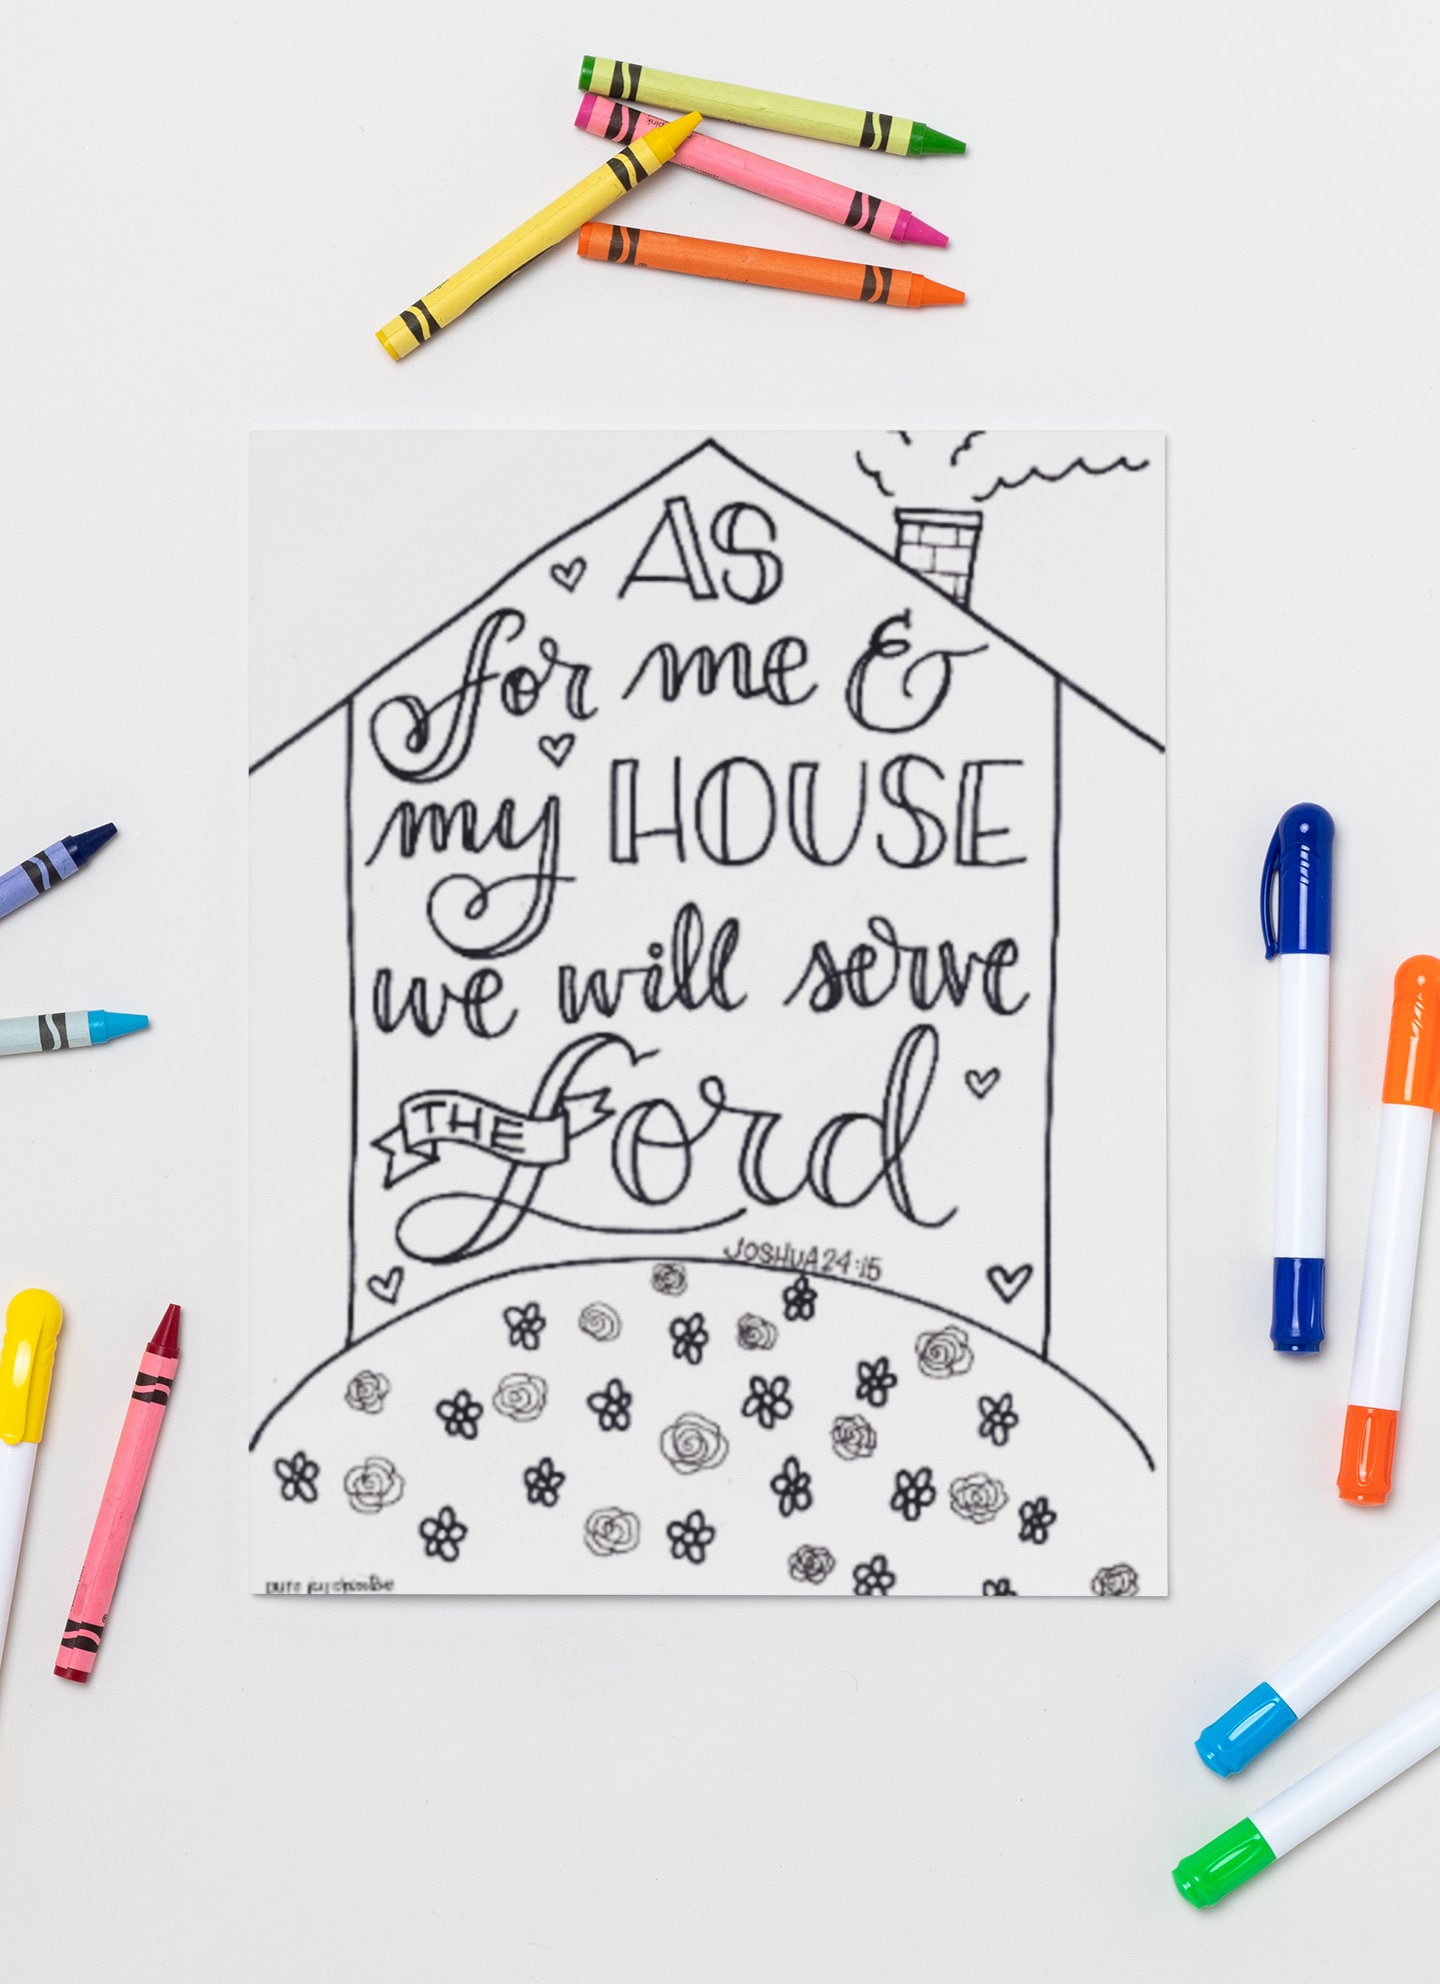 AS
for me &
my HOUSE
we will serve
THE Lord
JOSHUA 24:15